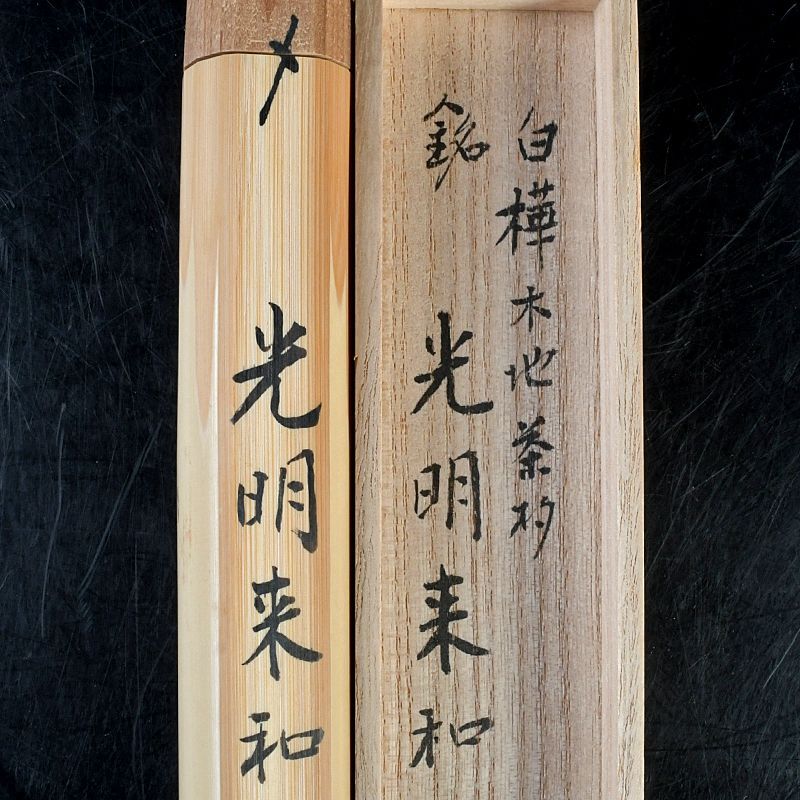 白樺木地茶杓
銘 光明来和
〆
光明来和